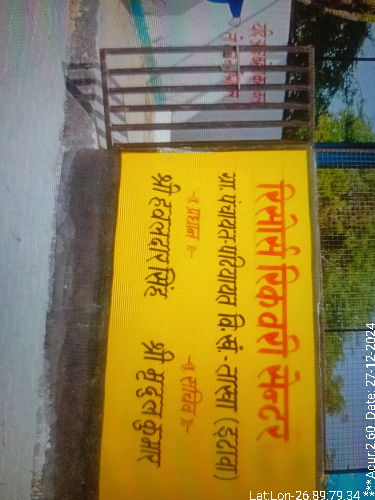 रिसोर्स रिकवरी सेन्टर
ग्रा. पंचायत-परियायत वि. खं.- ताखा (इटावा)
-:( प्रधान ):- -:( सचिव ):-
श्री हवलदार सिंह श्री मृदुल कुमार
Lat Lon-26.89:79.34 ***Acur:2.60 Date: 27-12-2024